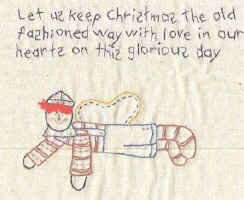 Let us keep Christmas the old
fashioned way with love in our
hearts on this glorious day